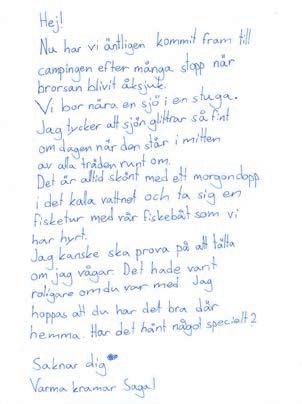 Hej!
Nu har vi äntligen kommit fram till
campingen efter många stopp när
brorsan blivit åksjuk.
Vi bor nära en sjö i en stuga.
Jag tycker att sjön glittrar så fint
om dagen när den står i mitten
av alla träden runt om.
Det är altid skönt med ett morgondopp
i det kalla vattnet och ta sig en
fisketur med vår fiskebåt som vi
har hyrt.
Jag kanske ska prova på att tälta
om jag vågar. Det hade varit
roligare om du var med. Jag
hoppas att du har det bra där
hemma. Har det hänt något speciellt?
Saknar dig
Varma kramar Saga!